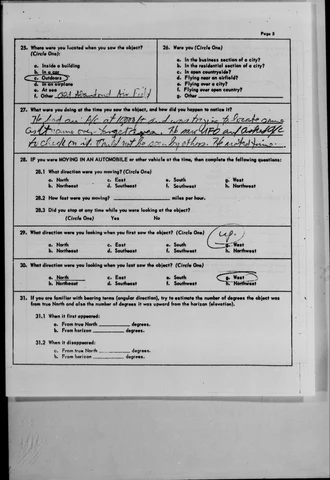 Page 3
25. Where were you located when you saw the object? (Circle One):
a. Inside a building
b. In a car
c. Outdoors
d. In an airplane
e. At sea
f. Other Old Abandoned Air Field
26. Were you (Circle One)
a. In the business section of a city?
b. In the residential section of a city?
c. In open countryside?
d. Flying near an airfield?
e. Flying over a city?
f. Flying over open country?
g. Other
27. What were you doing at the time you saw the object, and how did you happen to notice it?
He had an A/C at 10,000 ft and was trying to locate some
over target area. He saw UFO and asked A/C
to check on it. Could not be seen by others. He
28. IF you were MOVING IN AN AUTOMOBILE or other vehicle at the time, then complete the following questions:
28.1 What direction were you moving? (Circle One)
a. North c. East e. South g. West
b. Northeast d. Southeast f. Southwest h. Northwest
28.2 How fast were you moving? miles per hour.
28.3 Did you stop at any time while you were looking at the object?
(Circle One) Yes No
29. What direction were you looking when you first saw the object? (Circle One) up
a. North c. East e. South g. West
b. Northeast d. Southeast f. Southwest h. Northwest
30. What direction were you looking when you last saw the object? (Circle One)
a. North c. East e. South g. West
b. Northeast d. Southeast f. Southwest h. Northwest
31. If you are familiar with bearing terms (angular direction), try to estimate the number of degrees the object was
from true North and also the number of degrees it was upward from the horizon (elevation).
31.1 When it first appeared:
a. From true North degrees.
b. From horizon degrees.
31.2 When it disappeared:
a. From true North degrees.
b. From horizon degrees.